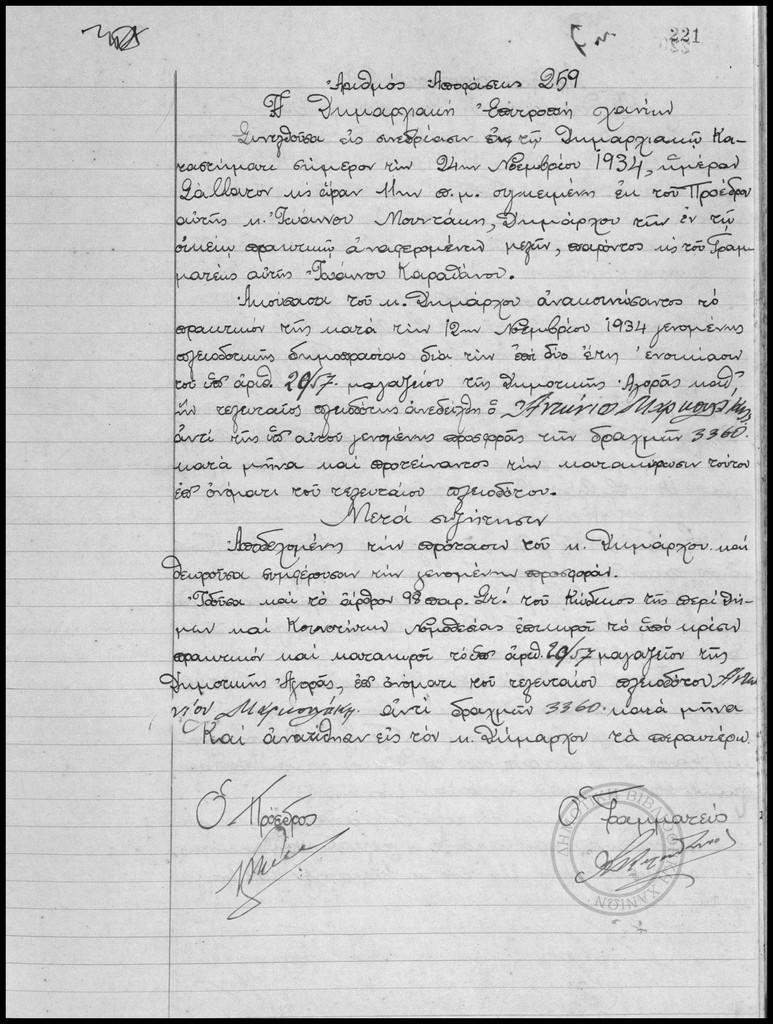 221
Ἀριθμός Ἀποφάσεως 259
Ἡ Δημαρχιακή Ἐπιτροπή Χανίων
Συνελθοῦσα εἰς συνεδρίασιν ἐν τῷ Δημαρχιακῷ Κα-
ταστήματι σήμερον τήν 24ην Νοεμβρίου 1934, ἡμέραν
Σάββατον κις ὥραν 11ην π.μ. συγκειμένη ἐκ τοῦ Προέδρου
αὐτῆς κ. Ἰωάννου Μουντάκη, Δημάρχου τῶν ἐν τῷ
οἰκείῳ πρακτικῷ ἀναφερομένων μελῶν, παρόντος κις τοῦ Γραμ-
ματέως αὐτῆς Ἰωάννου Καραθάνου.
Ἀκούσασα τοῦ κ. Δημάρχου ἀνακοινώσαντος τό
πρακτικόν τῆς κατά τήν 12ην Νοεμβρίου 1934 γενομένης
πλειοδοτικῆς δημοπρασίας διά τήν ἐπί δύο ἔτη ἐνοικίασιν
τοῦ ὑπ' ἀριθ. 20/57. μαγαζείου τῆς Δημοτικῆς Ἀγορᾶς καθ'
ἥν τελευταῖος πλειοδότης ἀνεδείχθη ὁ Ἀντώνιο Μαρκουλάκη
ἀντί τῆς ὑπ' αὐτοῦ γενομένης προσφορᾶς τῶν δραχμῶν 3360.
κατά μῆνα καί προτείναντος τήν κατακύρωσιν τούτου
ἐπ' ὀνόματι τοῦ τελευταίου πλειοδότου.
Μετά συζήτησιν
Ἀποδεχομένη τήν πρότασιν τοῦ κ. Δημάρχου καί
θεωροῦσα συμφέρουσαν τήν γενομένην προσφοράν.
Ἰδοῦσα καί τό ἄρθρον 98 παρ. Στ! τοῦ Κώδικος τῆς περί Δή-
μων καί Κοινοτήτων Νομοθεσίας ἐπικυροῖ τό ὑπό κρίσιν
πρακτικόν καί κατακυροῖ τό ὑπ' ἀριθ. 20/57 μαγαζεῖον τῆς
Δημοτικῆς Ἀγορᾶς, ἐπ' ὀνόματι τοῦ τελευταίου πλειοδότου Ἀντω
νίου Μαρκουλάκη. ἀντί δραχμῶν 3360. κατά μῆνα
Καί ἀνατίθησιν εἰς τόν κ. Δήμαρχον τά περαιτέρω.
Ὁ Πρόεδρος
Ὁ Γραμματεύς
ΔΗΜΟΤΙΚΗ ΒΙΒΛΙΟΘΗΚΗ ΧΑΝΙΩΝ